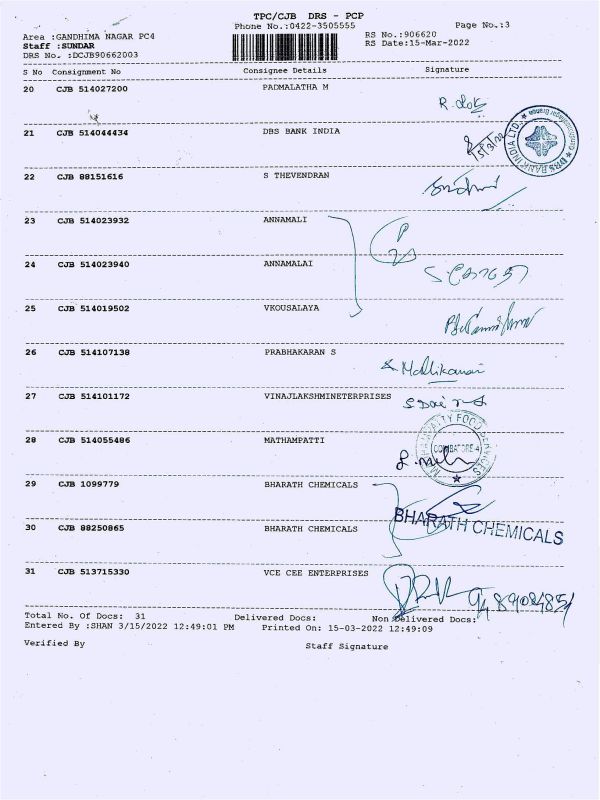 TPC/CJB DRS - PCP
Phone No.:0422-3505555 Page No.:3
Area :GANDHIMA NAGAR PC4 RS No.:906620
Staff :SUNDAR RS Date:15-Mar-2022
DRS No. :DCJB90662003
S No Consignment No Consignee Details Signature
20 CJB 514027200 PADMALATHA M
21 CJB 514044434 DBS BANK INDIA
DBS BANK INDIA LTD.
22 CJB 88151616 S THEVENDRAN
23 CJB 514023932 ANNAMALI
24 CJB 514023940 ANNAMALAI
25 CJB 514019502 VKOUSALAYA
26 CJB 514107138 PRABHAKARAN S
27 CJB 514101172 VINAJLAKSHMINETERPRISES
28 CJB 514055486 MATHAMPATTI
COIMBATORE-4
29 CJB 1099779 BHARATH CHEMICALS
BHARATH CHEMICALS
30 CJB 88250865 BHARATH CHEMICALS
31 CJB 513715330 VCE CEE ENTERPRISES
Total No. Of Docs: 31 Delivered Docs: Non Delivered Docs:
Entered By :SHAN 3/15/2022 12:49:01 PM Printed On: 15-03-2022 12:49:09
Verified By Staff Signature